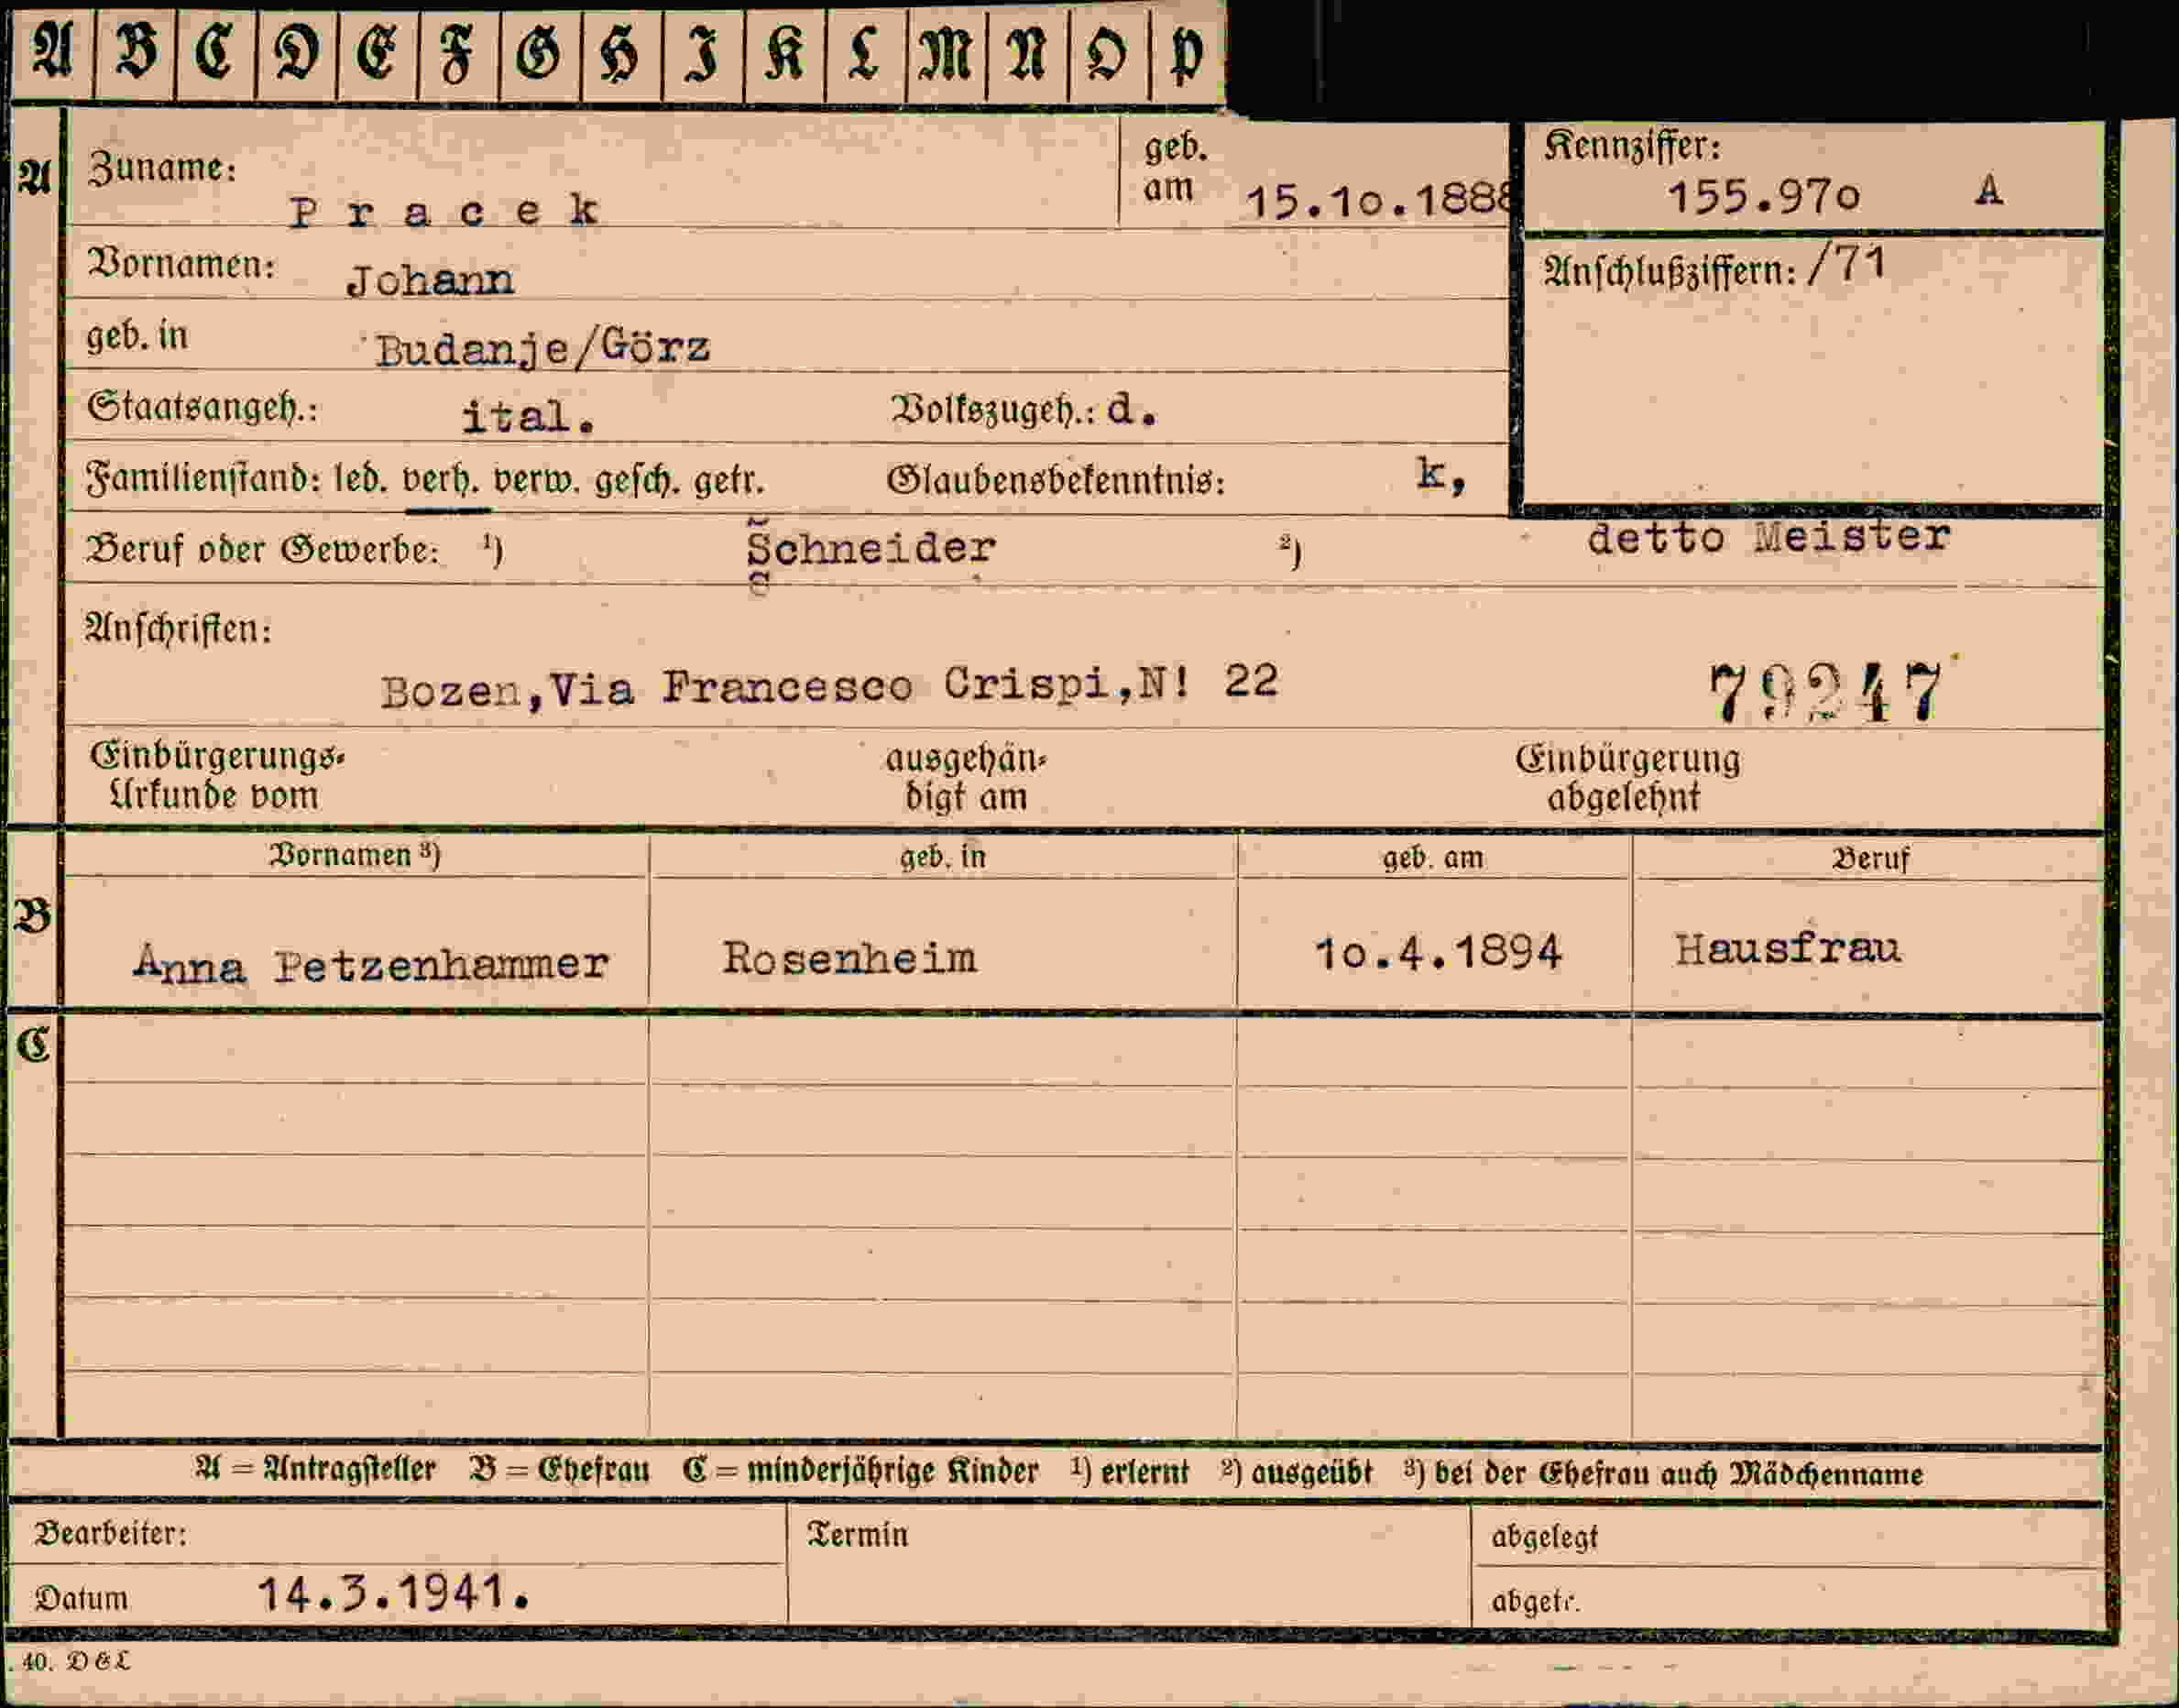 A B C D E F G H I K L M N O P
A Zuname: Pracek geb. am 15.10.1888 Kennziffer: 155.970 A
Vornamen: Johann Anschlußziffern: /71
geb. in Budanje/Görz
Staatsangeh.: ital. Volkszugeh.: d.
Familienstand: led. verh. verw. gesch. getr. Glaubensbekenntnis: k,
Beruf oder Gewerbe: ¹) Schneider ²) detto Meister
Anschriften:
Bozen,Via Francesco Crispi,N! 22 79247
Einbürgerungs- ausgehän- Einbürgerung
Urkunde vom digt am abgelehnt
Vornamen ³) geb. in geb. am Beruf
B Anna Petzenhammer Rosenheim 10.4.1894 Hausfrau
C
A = Antragsteller B = Ehefrau C = minderjährige Kinder ¹) erlernt ²) ausgeübt ³) bei der Ehefrau auch Mädchenname
Bearbeiter: Termin abgelegt
Datum 14.3.1941. abgetr.
. 40. D & L